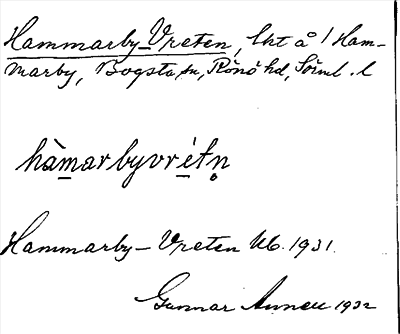 Hammarby-Vreten, lht å 1 Ham-
marby, Bogsta sn, Rönö hd, Sörml. l
hàmarbyvrétn̥
Hammarby-Vreten Ub. 1931.
Gunnar 1932